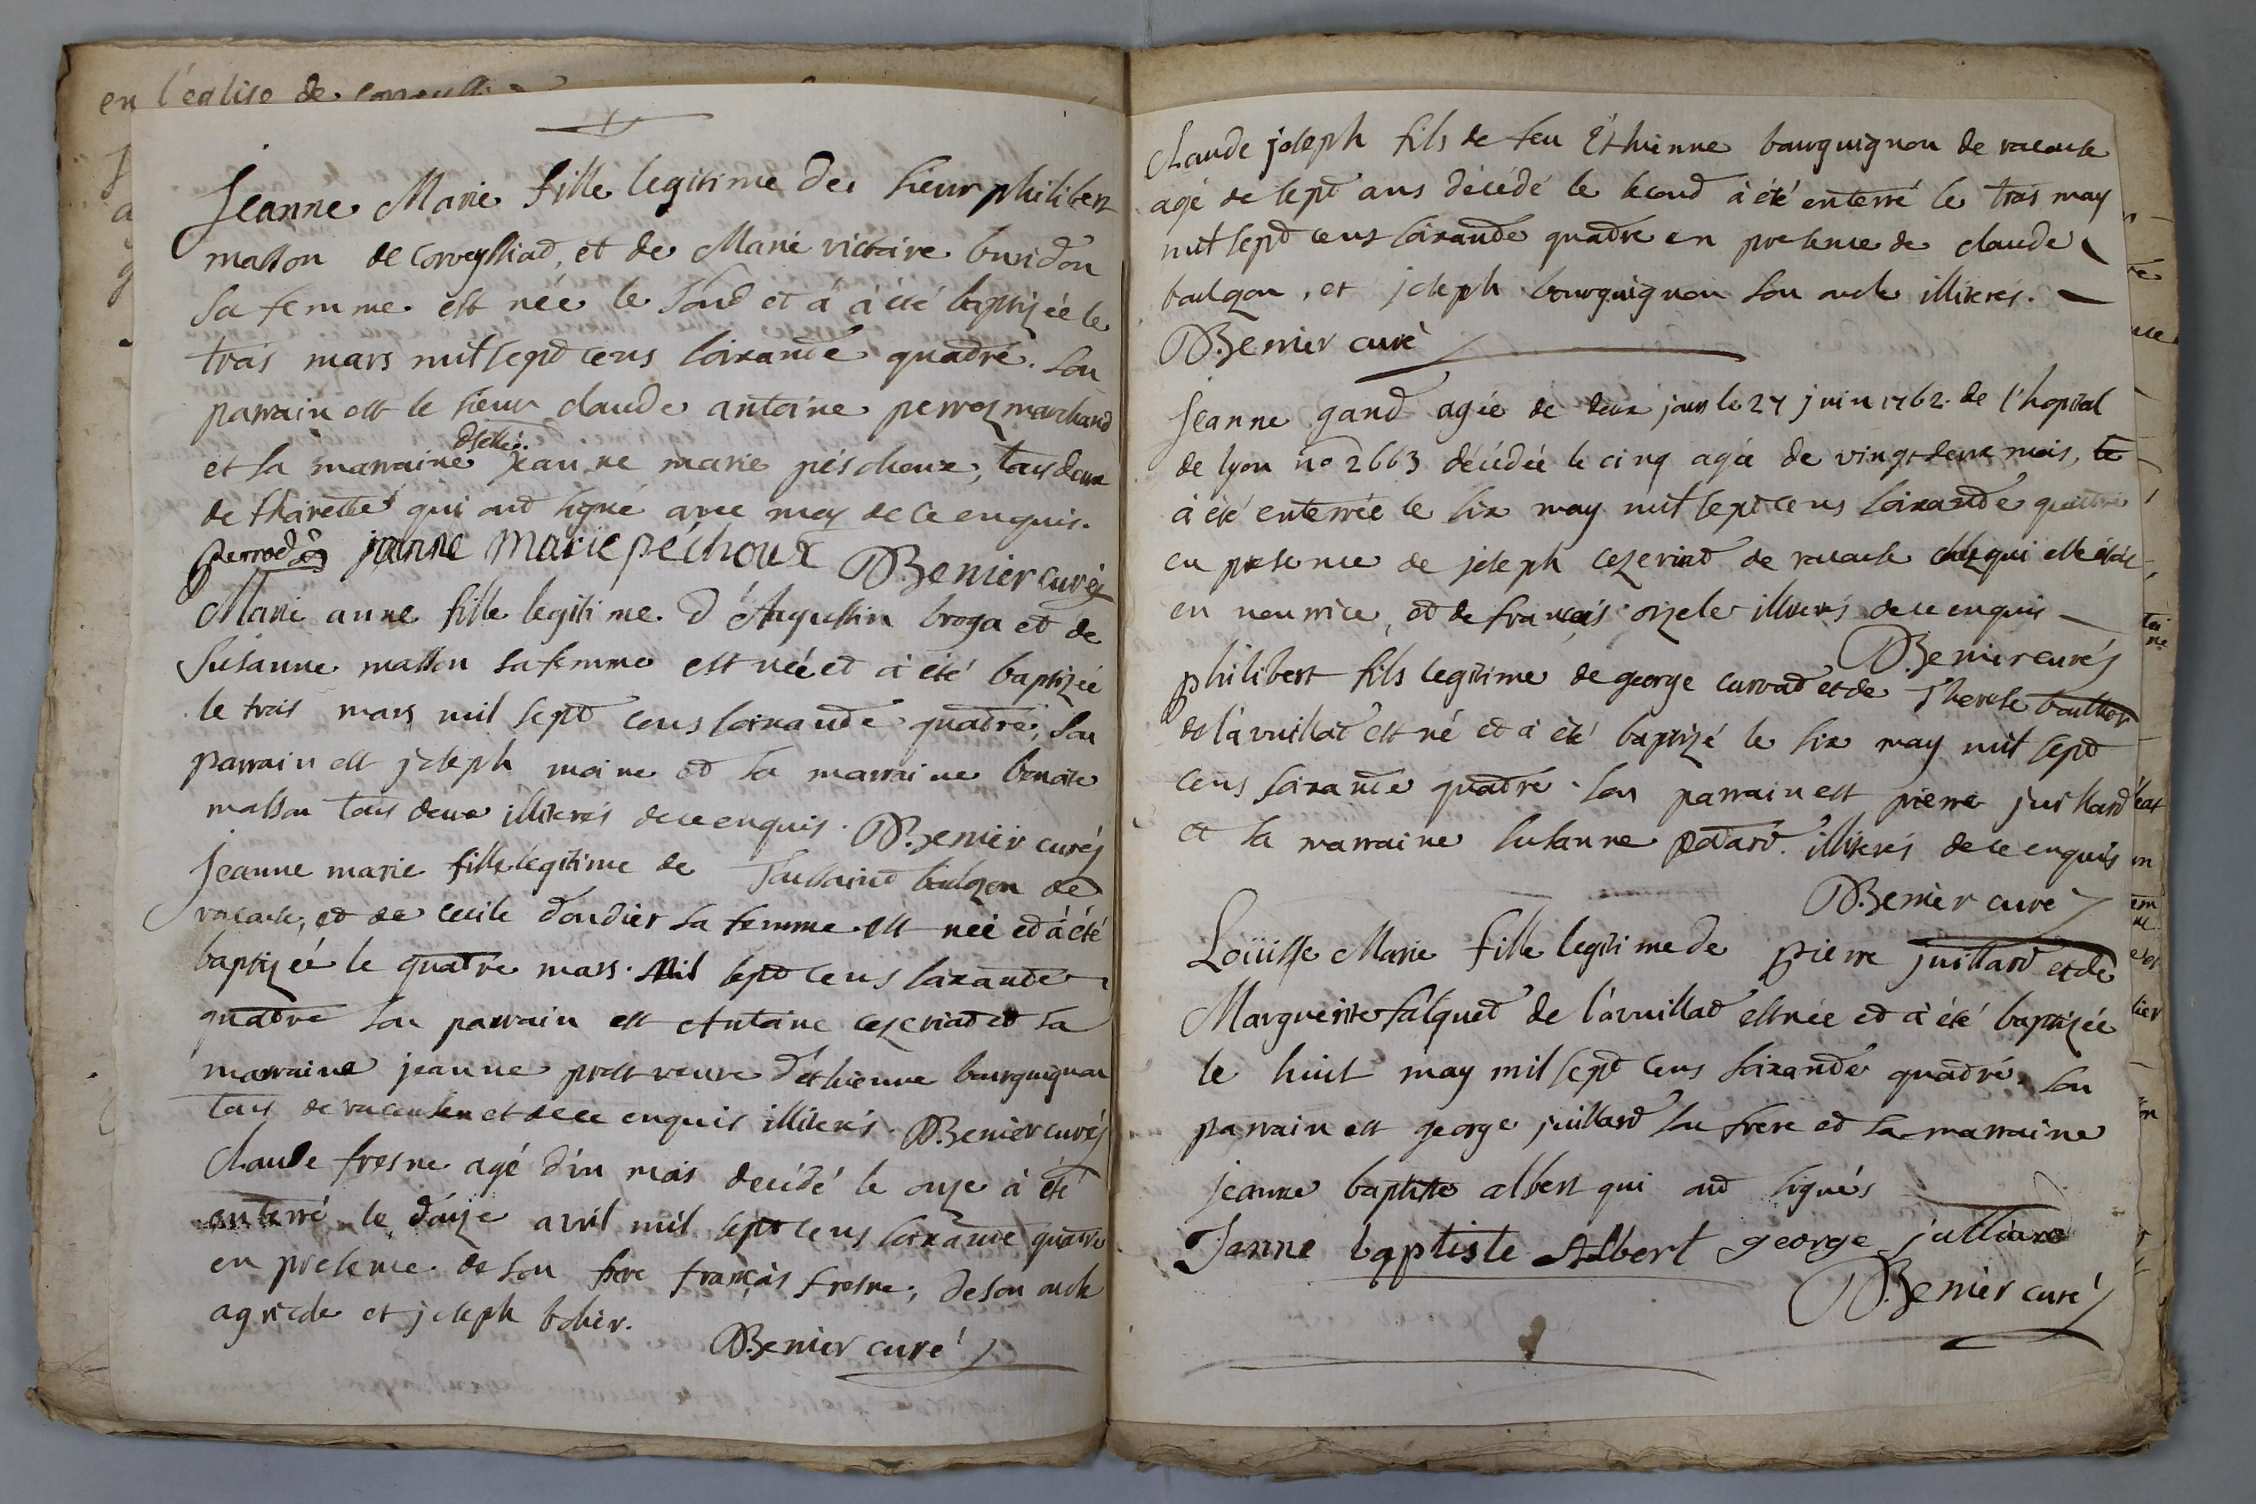 en l'eglise de
Jeanne Marie fille legitime du sieur philibert
masson de Corveyssiad, et de Marie victoire buridon
sa femme est née le second et à été baptizée le
trois mars mil sept cens soixande quadre. son
parrain est le sieur claude antoine perroz marchand
dselle.
et sa marraine Jeanne marie péschoux, tous deux
de thoirette qui ond signé avec moy de ce enquis.
perrod jeanne Marie péchoux D. Benier curé
Marie anne fille legitime d'Augustin broga et de
Susanne masson sa femme est née ed à été baptizée
le trois mars mil sept cens soixande quadre, son
parrain est joseph moine ed sa marraine benoite
masson tous deux illiterés de ce enquis. D. Benier curé
Jeanne marie fille legitime de Toussaind bolgon de
racouse, ed de cecile dondier sa femme est née ed à été
baptizée le quatre mars. Mil sept cens soixande
quadre son parrain est Antoine cezeriad ed sa
marraine jeanne prost veuve d'éthienne bourguignon
tous de racouse et de ce enquis illiterés. D. Benier curé
Claude fresne agé d'un mois decédé le onze à été
enterré le douze avril mil sept cens soixante quatre
en presence de son frere françois fresne, de son oncle
agricole et joseph boher.
D. Benier curé
Claude joseph fils de feu Ethienne bourguignon de racouse
agé de sept ans décédé le second à été enterré le trois may
mil sept cens soixande quadre en presence de claude
bolgon, et joseph bourguignon son oncle illiterés.
D. Benier curé
Jeanne gand agée de deux jours le 27 juin 1762. de l'hopital
de lyon no 2663 décédée le cinq agée de vingt deux mois, le
à été enterrée le six may mil sept cens soixande quattre
en presence de joseph cezeriad de racouse chez qui elle étoit
en nourrice, ed de françois oizele illiterés de ce enquis
D. Benier curé
philibert fils legitime de george curvad et de Therese
de l'avuillad est né ed à été baptizé le six may mil sept
cens soixante quadre. son parrain est pierre juillard
et sa marraine susanne podard. illiterés de ce enquis
D. Benier curé
Loüisse Marie fille legitime de pierre juillard et de
Margueritte falqued de l'avuillad est née ed à été baptizée
le huit may mil sept cens soixande quadre, son
parrain est george juillard son frere ed sa marraine
jeanne baptiste albert qui ond signés
Janne baptiste Albert george julliard
D. Benier curé